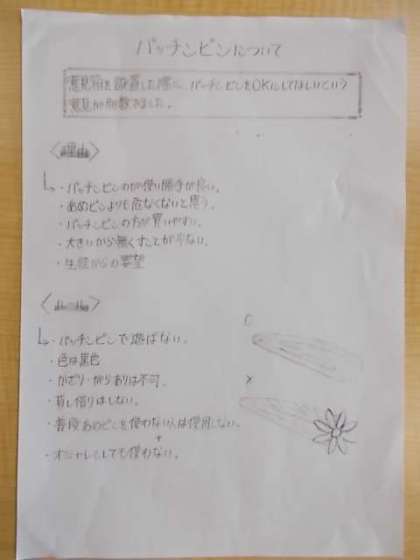 パッチンピンについて
意見箱を設置した際に、パッチンピンをOKにしてほしいという
意見が複数きました。
〈理由〉
・パッチンピンのが使い勝手が良い。
・あめピンよりも危なくないと思う。
・パッチンピンの方が買いやすい。
・大きいから無くすことが少ない。
・生徒からの要望
〈ルール〉
・パッチンピンで遊ばない。
・色は黒色
・かざり・がらありは不可。
・貸し借りはしない。
・普段あめピンを使わない人は使用しない。
・オシャレとしても使わない。
○
×